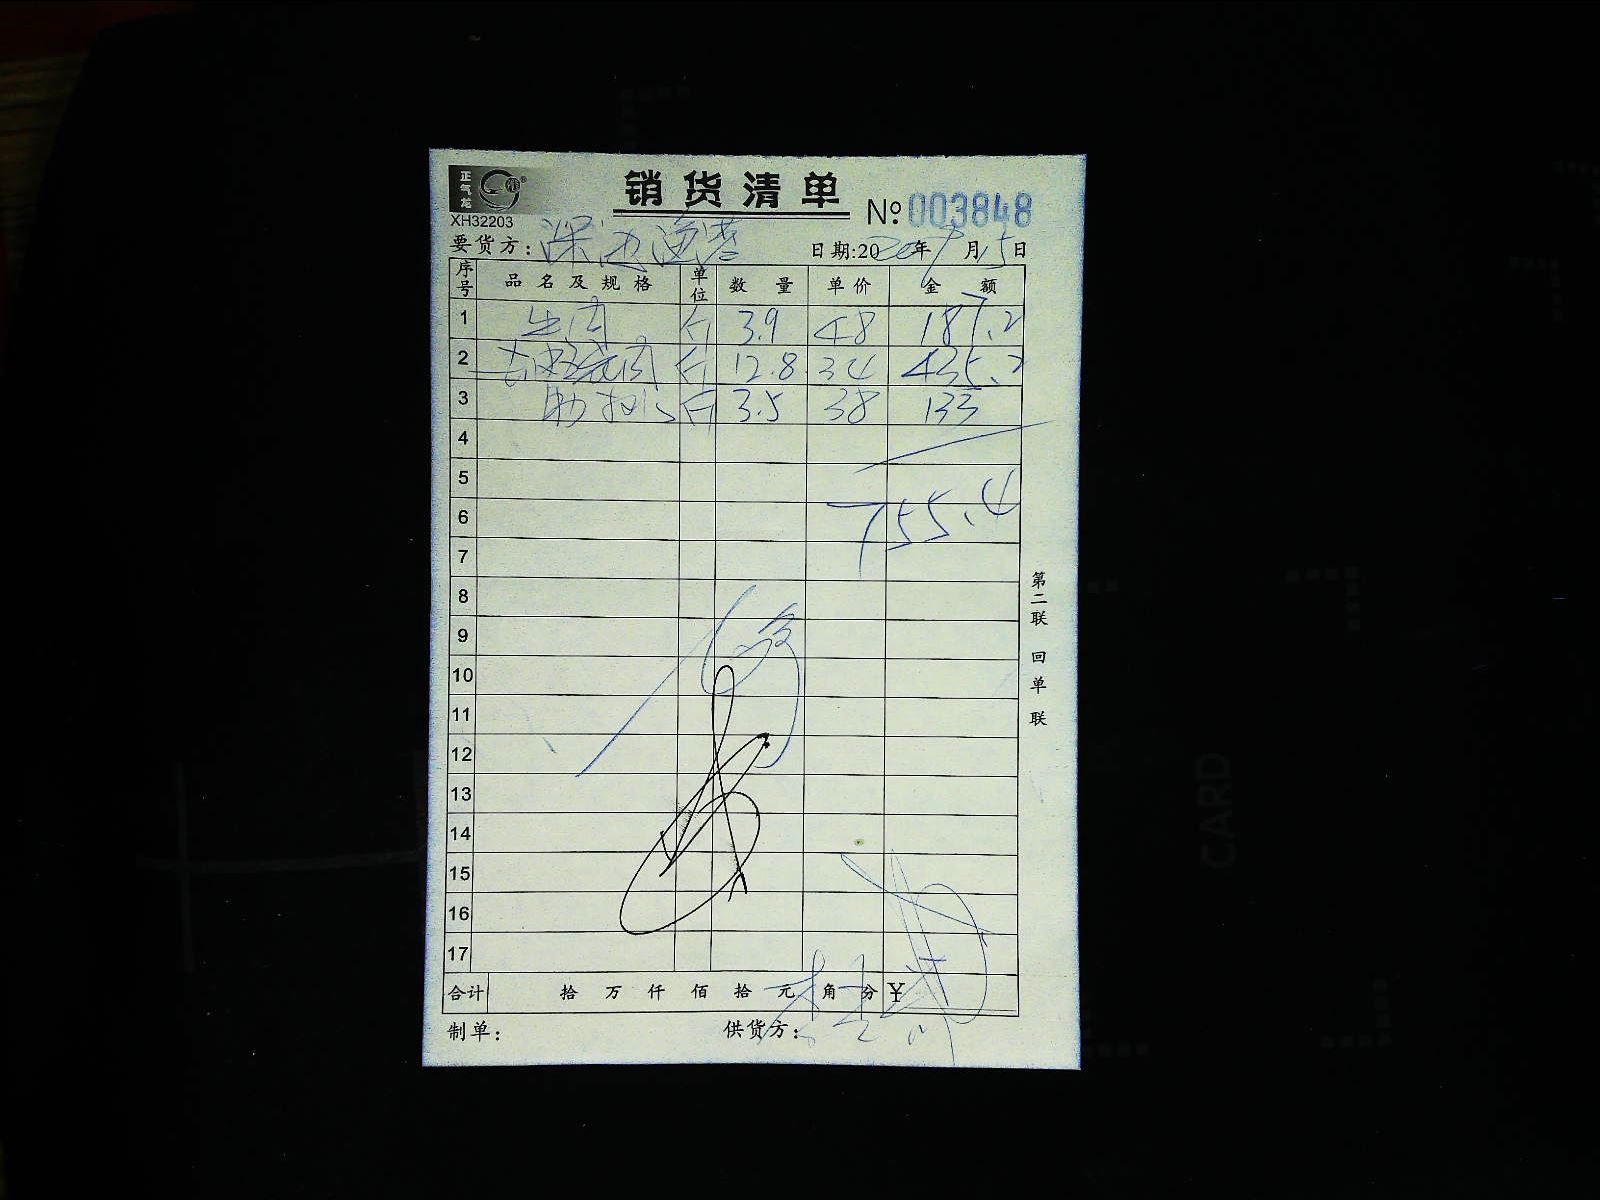 正气龙 ®
销货清单
XH32203
№ 003848
要货方: 深 渔港
日期:2020年9月15日
序号 品名及规格 单位 数量 单价 金额
1 牛肉 斤 3.9 48 187.2
2 肉 斤 12.8 34 435.2
3 肋排 斤 3.5 38 133
4
5
755.4
6
7
8
9
10
11
12
13
14
15
16
17
合计 拾万仟佰拾元角分¥
制单:
供货方:
第二联 回单联
CARD